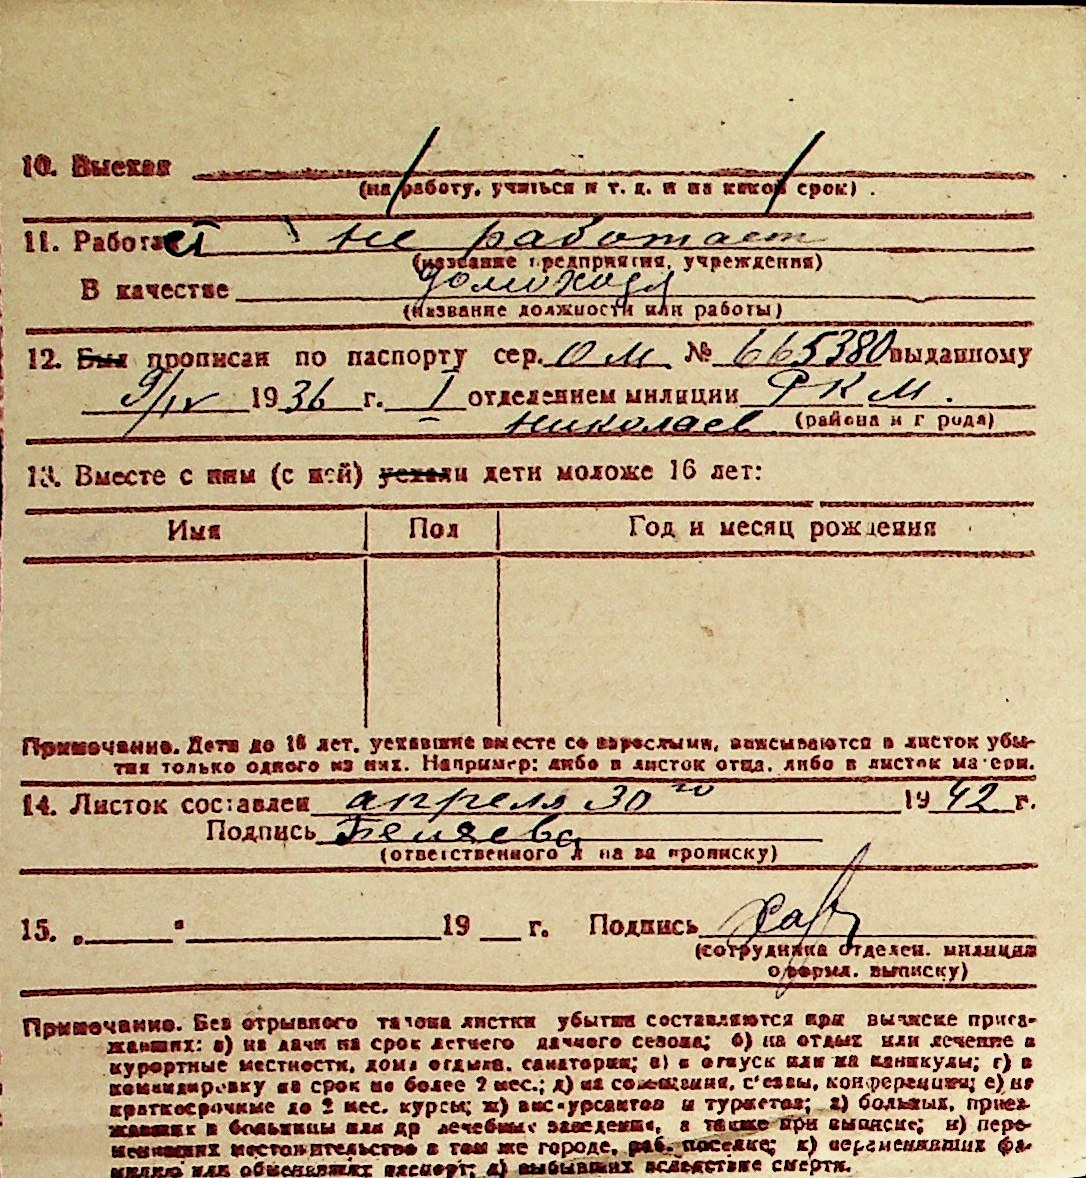 10. Выехал
(на работу, учиться и т. д. и на какой срок)
11. Работает не работает
(название предприятия, учреждения)
В качестве домохоз
(название должности или работы)
12. Был прописан по паспорту сер. ОМ № 665380 выданному
9/IV 1936 г. I отделением милиции РКМ.
Николаев (района и города)
13. Вместе с ним (с ней) уехали дети моложе 16 лет:
Имя Пол Год и месяц рождения
Примечание. Дети до 16 лет, уехавшие вместе со взрослыми, вписываются в листок убы-
тия только одного из них. Например: либо в листок отца, либо в листок матери.
14. Листок составлен апреля 30го 1942 г.
Подпись Беляева
(ответственного л на за прописку)
15. „ " 19 г. Подпись
(сотрудника отделен. милиции
оформл. выписку)
Примечание. Без отрывного талона листки убытия составляются при выписке приез-
жавших: а) на дачи на срок летнего дачного сезона; б) на отдых или лечение в
курортные местности, дома отдыха, санатории; в) в отпуск или на каникулы; г) в
командировку на срок не более 2 мес.; д) на совещания, с'езды, конференции; е) на
краткосрочные до 2 мес. курсы; ж) экскурсантов и туристов; з) больных, приез-
жавших в больницы или др лечебные заведения, а также при выписке; и) пере-
менивших местожительство в том же городе, раб. поселке; к) переменивших фа-
милию или обменявших паспорт; л) выбывших вследствие смерти.